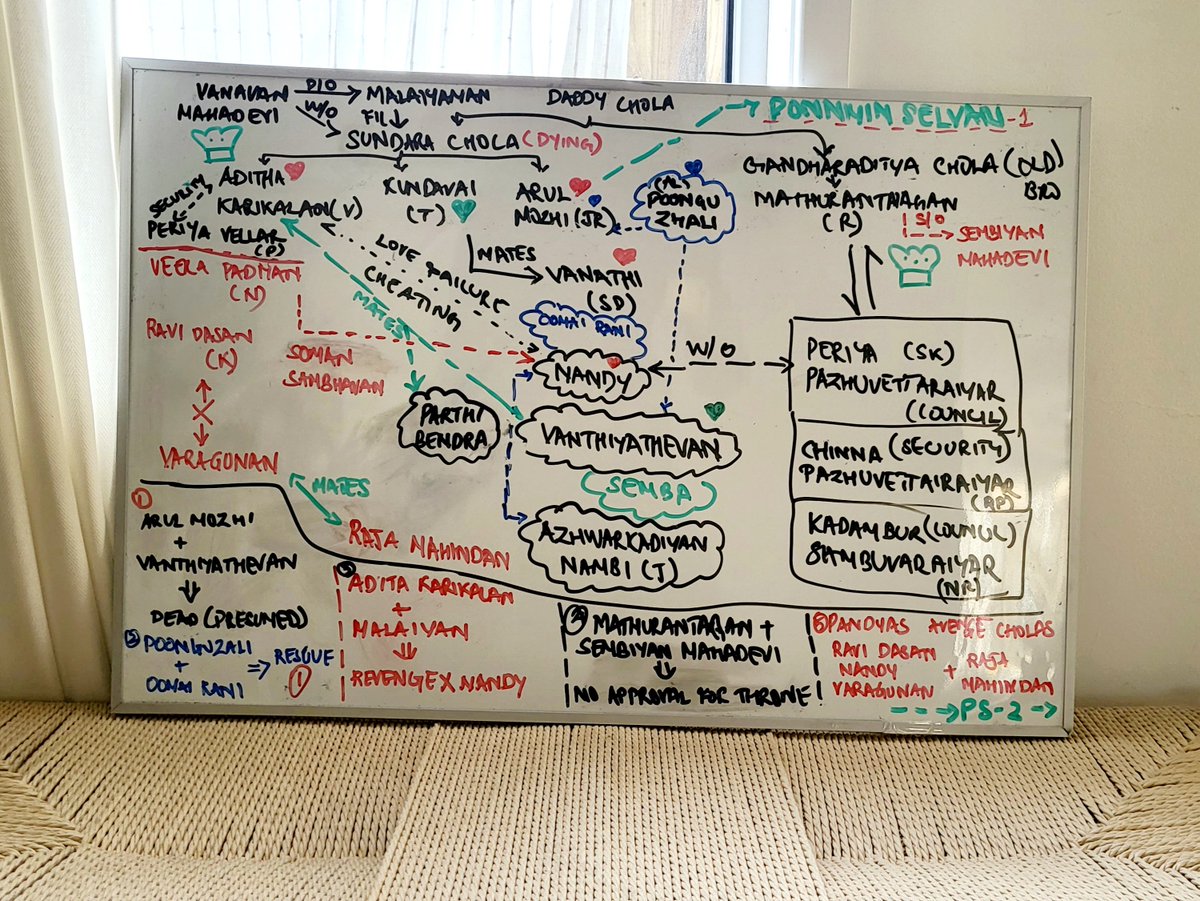 VANAVAN
MAHADEVI
D/O
W/O
MALAIYAMAN
FIL
DADDY CHOLA
PONNIYIN SELVAN-1
SUNDARA CHOLA (DYING)
GANDHARADITYA CHOLA (OLD)
BRO
ADITHA
KARIKALAN (V)
KUNDAVAI
(T)
ARUL
MOZHI (JR)
(AL)
POONGU
ZHALI
MATHURANTHAGAN
(R)
S/O
SEMBIYAN
MAHADEVI
SECURITY
PERIYA VELLAR
(P)
MATES
VANATHI
(SD)
LOVE FAILURE
CHEATING
VEERA PANDIYAN
(N)
OOMAI RANI
RAVI DASAN
(K)
SOMAN
SAMBHAVAN
MATES
NANDY
W/O
PERIYA (SK)
PAZHUVETTARAIYAR
(COUNCIL)
PARTHI
BENDRA
VANTHIYATHEVAN
CHINNA (SECURITY)
PAZHUVETTAIRAIYAR
(RP)
(SEMBA)
VARAGUNAN
MATES
RAJA MAHINDAN
AZHWARKADIYAN
NAMBI (J)
KADAMBUR (COUNCIL)
SAMBUVARAIYAR
(NR)
1
ARUL MOZHI
+
VANTHIYATHEVAN
DEAD (PRESUMED)
POONGUZALI
+
OOMAI RANI
⇒ RESCUE
1
ADITA KARIKALAN
+
MALAIYAN
REVENGE X NANDY
MATHURANTAGAN +
SEMBIYAN MAHADEVI
NO APPROVAL FOR THRONE
PANDYAS AVENGE CHOLAS
RAVI DASAN
NANDY
VARAGUNAN
+ RAJA
MAHINDAN
PS-2